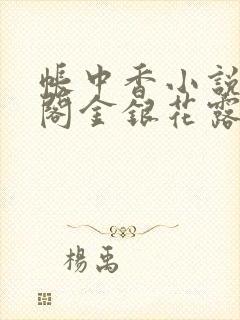 帳中香小說
閣金銀花露
楊禹